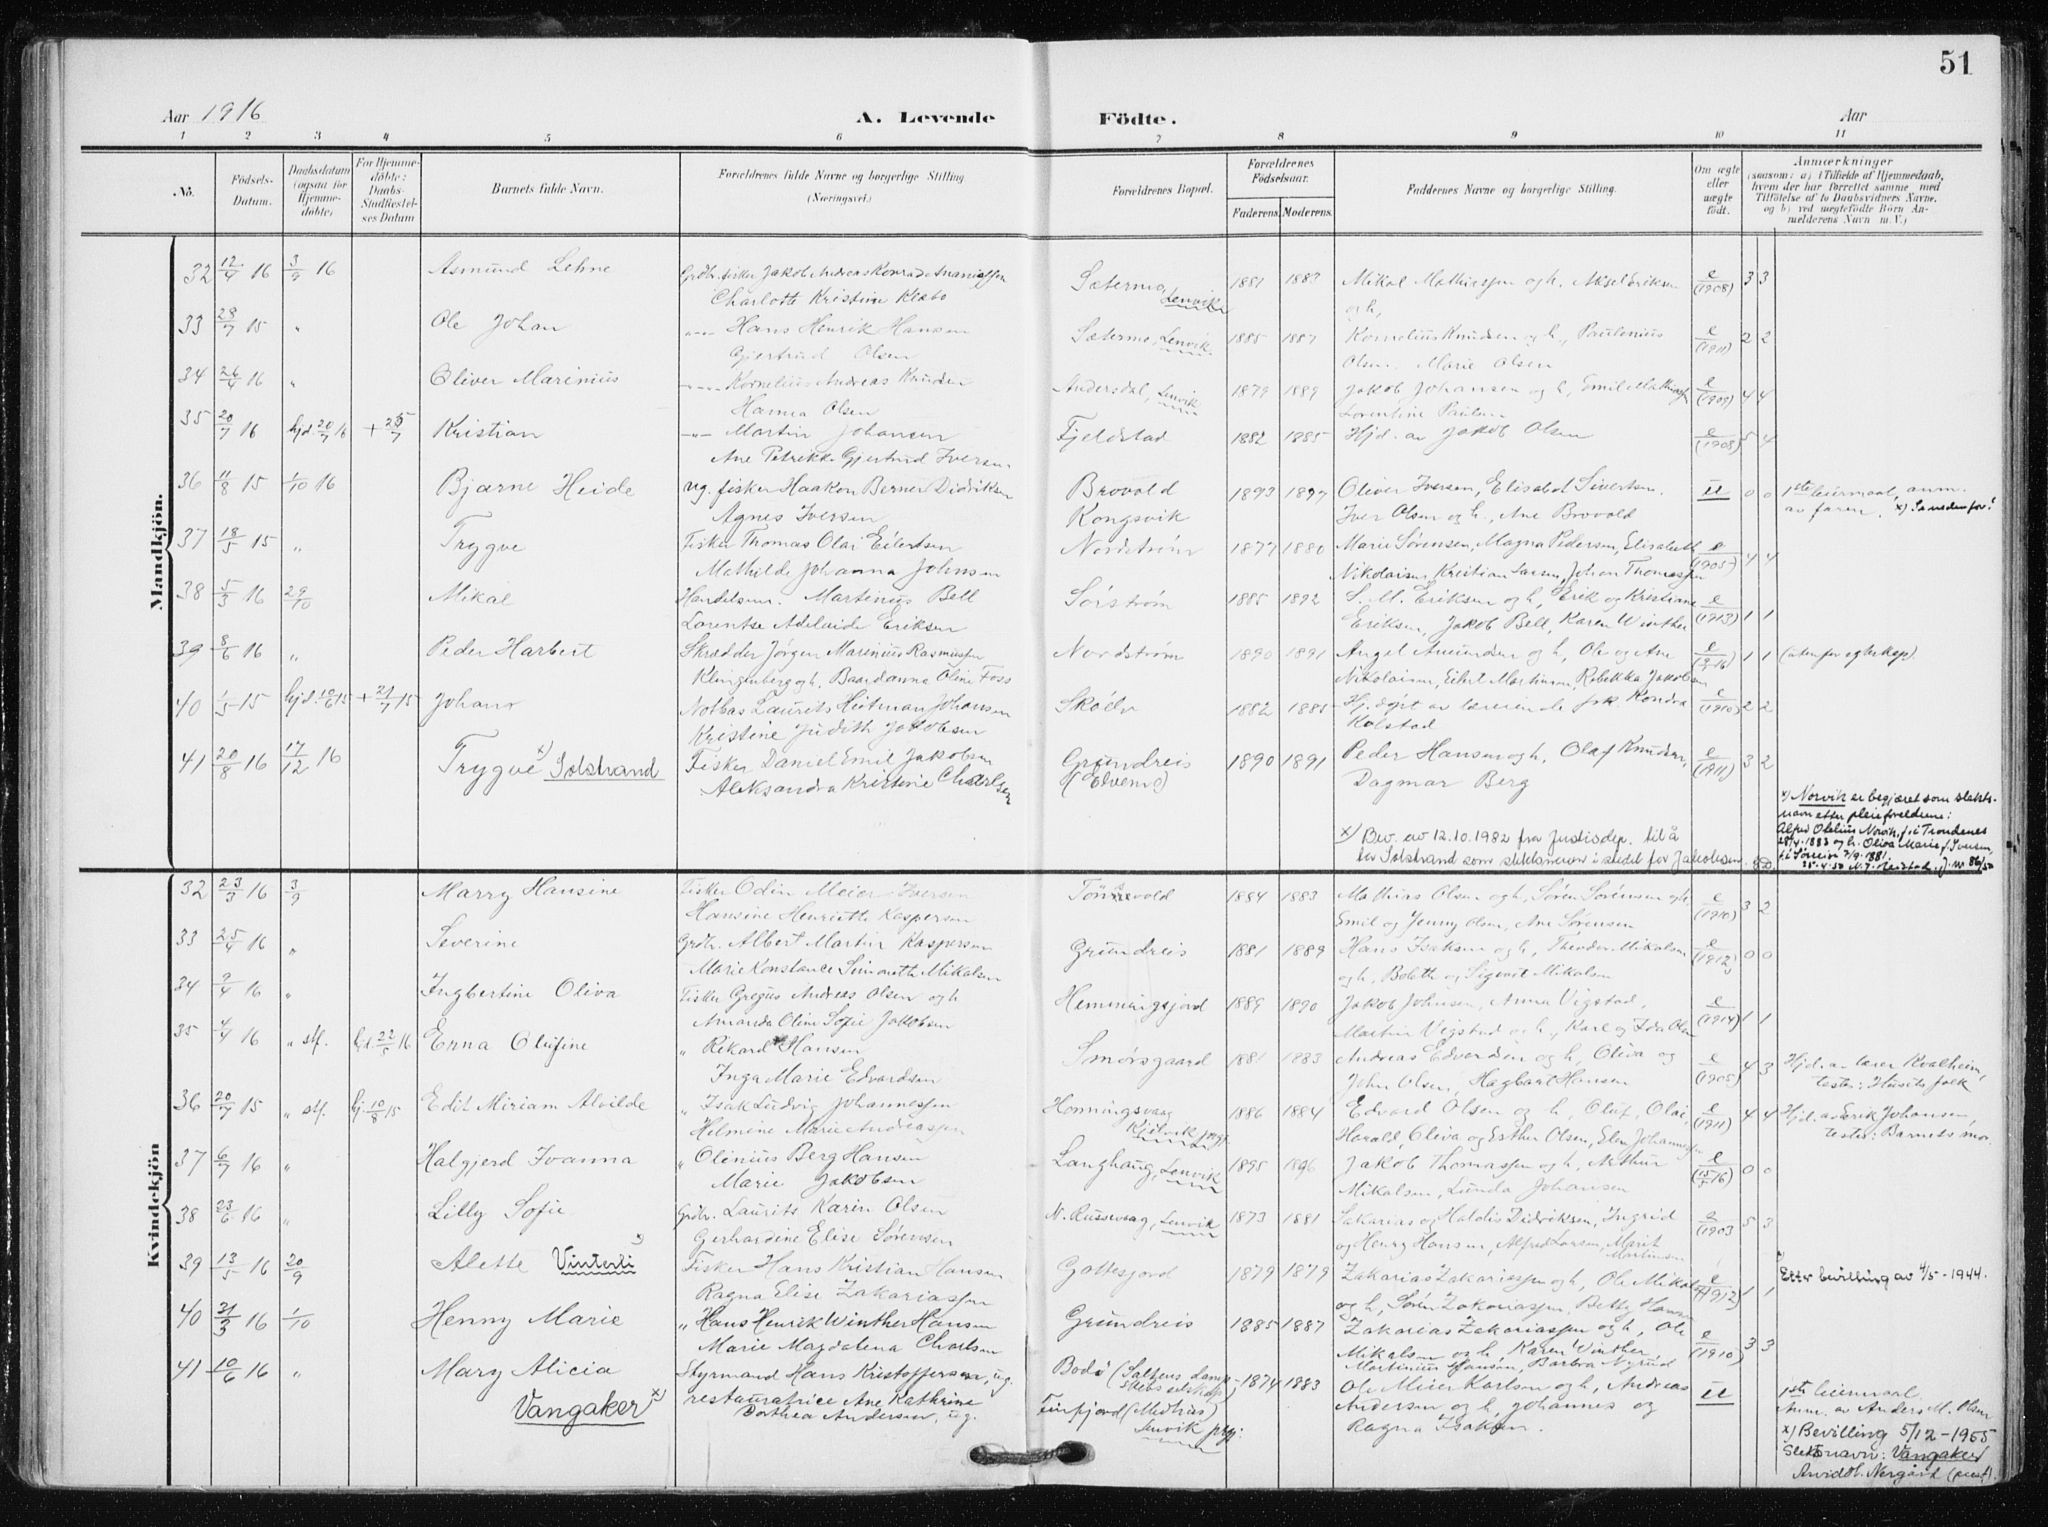 51
Aar 1916 A. Levende Födte. Aar
1 2 3 4 5 6 7 8 9 10 11
No. Födsels-Datum. Daabsdatum (ogsaa for Hjemme-döbte) For Hjemme-döbte: Daabs-Stadfæstel-ses Datum Barnets fulde Navn. Forældrenes fulde Navne og borgerlige Stilling (Næringsvei.) Forældrenes Bopæl. Forældrenes Födselsaar. Faderens. Moderens. Faddernes Navne og borgerlige Stilling. Om ægte eller uægte födt. Anmærkninger (saasom: a) i Tilfælde af Hjemmedaab, hvem der har forrettet samme, med Tilföielse af to Daabsvidners Navne. og b) ved uægtefödte Börn An-melderens Navn m. V.)
Mandkjön.
32 12/4 16 3/9 16 Asmund Lehne Grdbr. fisker Jakob Andreas Konrad Ananiassen Sætermo, Lenvik 1881 1883 Mikal Mathiassen og h. Aksel Eriksen e (1908) 3 3
Charlotte Kristine Klæbo og h,
33 28/7 15 " Ole Johan "-"- Hans Henrik Hansen Sætermo, Lenvik. 1885 1887 Kornelius Knudsen og h., Paulenius e (1911) 2 2
Gjertrud Olsen Olsen. Marie Olsen
34 26/4 16 " Oliver Marinius "-"- Kornelius Andreas Knudsen Andersdal, Lenvik 1879 1889 Jakob Johansen og h, Emil Mathiassen e (1909) 4 4
Hanna Olsen Lorentine Paulsen
35 20/7 16 hjd. 20/7 16 + 25/7 Kristian "-"- Martin Johansen Fjeldstad 1882 1885 Hjd. av Jakob Olsen e (1908) 5 4
Ane Petrikke Gjertrud Iversen
36 11/8 15 1/10 16 Bjarne Heide ug. fisker Haakon Berner Didriksen Brovold 1893 1897 Oliver Iversen, Elisabet Sivertsen. u 0 0 1ste leiermaal, anm.
Agnes Iversen Kongsvik Iver Olsen og h., Ane Brovold av faren. x) Se nedenfor!
37 18/5 15 " Trygve Fisker Thomas Olai Eilertsen Nordstrøm 1877 1880 Marie Sørensen, Magna Pedersen, Elisabeth e (1905) 4 4
Mathilde Johanna Johnsen Nikolaisen, Kristian Larsen, Johan Thomassen
38 5/3 16 29/10 Mikal Handelsm. Martinus Bell Sørstrøm 1885 1892 S. M. Eriksen og h, Erik og Kristiane e (1913) 1 1
Lorentse Adelaide Eriksen Eriksen, Jakob Bell, Karen Winther
39 8/6 16 " Peder Harbert Skrædder Jørgen Marinius Rasmussen Nordstrøm 1890 1891 Angel Amundsen og h, Ole og Ane e (9/4 16) 1 1 (utenfor egteskap).
Klingenberg og h. Baardanna Oline Foss Nikolaisen, Eilert Martinsen, Rebekka Jakobsen
40 1/5 15 hjd. 10/6 15 + 21/7 15 Johan Notbas Laurits Heitman Johansen Skøelv 1882 1885 Hj. døpt av lærerinde frk. Kondra e (1910) 2 2
Kristine Judith Jakobsen Kolstad
41 20/8 16 17/12 16 Trygve x) Solstrand Fisker Daniel Emil Jakobsen Grundreis 1890 1891 Peder Hansen og h, Olaf Knudsen, e (1911) 3 2
Aleksandra Kristine Charlsen (Elvemo) Dagmar Berg
x) Bev. av 12.10.1982 fra Justisdep. til å
bær Solstrand som slektsnavn i stedet for Jakobsen.
x) Norvik er begjæret som slekts-
navn etter pleieforeldrene:
Alfred Otelius Norvik, f. i Trondenes
28/4.1883 og h. Oliva Marie f. Iversen,
f. i Sørreisa 7/9.1881.
Kvindekjön
32 23/3 16 3/9 Marry Hansine Fisker Odin Meier Iversen Tønnsvold 1884 1883 Mathias Olsen og h, Søren Sørensen og h. e (1910) 3 2
Hansine Henriette Kaspersen Emil og Jenny Olsen, Ane Sørensen
33 25/4 16 " Severine Grdbr. Albert Martin Kaspersen Grundreis 1881 1889 Hans Isaksen og h, Theodor Mikalsen e (1912) 0 0
Marie Konstance Simoneth Mikalsen og h, Bolette og Sigurd Mikalsen
34 9/4 16 " Ingbertine Oliva Fisker Gregus Andreas Olsen og h Hemmingsjord 1889 1890 Jakob Johnsen, Anna Vigstad, e (1914) 1 1
Amanda Oline Sofie Jakobsen Martin Vigstad og h., Karl og Ida Olsen
35 4/4 16 " stf. hjd. 22/5 16 Erna Olufine " Rikard Hansen Smørsgaard 1881 1883 Andreas Edvardsen og h, Oliva og e (1905) 4 3 Hjd. av lærer Kvalheim,
Inga Marie Edvardsen John Olsen, Hagbart Hansen tester: Husets folk
36 20/7 15 " stf. hj. 10/8 15 Edit Miriam Alvilde " Isak Ludvig Johannessen Honningsvaag Kjelvik prgj. 1886 1884 Edvard Olsen og h, Oluf, Olai, e (1911) 4 4 Hjd. av Erik Johansen,
Helmine Marie Andreassen Harald Oliva og Esther Olsen, Elen Johannessen tester: Barnets mor
37 6/7 16 " Halgjerd Ivanna " Olenius Berg Hansen Langhaug, Lenvik 1895 1896 Jakob Thomassen og h, Arthur e (15/5 16) 0 0
Marie Jakobsen Mikalsen, Lunda Johansen
38 23/6 16 " Lilly Sofie Grdbr. Laurits Karin Olsen N. Russevaag, Lenvik 1873 1881 Sakarias og Haldis Didriksen, Ingrid e (1903 5 3
Gerhardine Elise Sørensen og Henry Hansen, Alfred Larsen, Marit Martinsen
39 13/5 16 20/9 Alette Vinterli x) Fisker Hans Kristian Hansen Gottesjord 1879 1879 Zakarias Zakariassen og h, Ole Mikalsen e (1912) 1 1 Etter bevilling av 4/5-1944.
Ragna Elise Zakariassen og h, Søren Zakariassen, Betty Hansen
40 31/3 16 1/10 Henny Marie " Hans Henrik Winther Hansen Grundreis 1885 1887 Zakarias Zakariassen og h, Ole e (1910) 3 3
Marie Magdalena Charlsen Mikalsen og h, Karen Winther
Martinius Hansen, Barbra Nyrud
41 10/6 16 " Mary Alicia Styrmand Hans Kristoffersen, ug. Bodø (Saltens Damp-skibsselskap) 1874 1883 Ole Meier Karlsen og h, Andreas u 1ste leiermaal
Vangaker x) restauratrice Ane Kathrine Finfjord (Medhus) Andersen og h, Johannes og Anm. av Anders M. Olsen
Dorthea Andersen, ug. Lenvik prgj: Ragna Isaksen. x) Bevilling 5/12-1955
Slektsnavn: Vangaker
Arvid Nergård (prest).